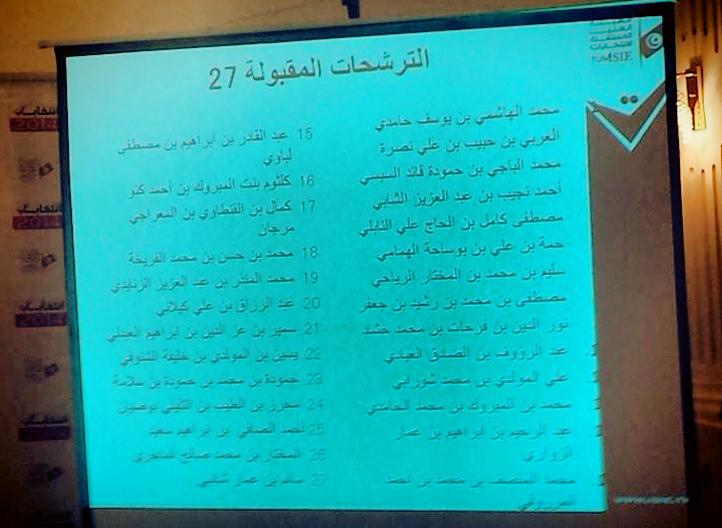 الترشحات المقبولة 27
TUNISIE
محمد الهاشمي بن يوسف حامدي
العربي بن حبيب بن علي نصرة
محمد الباجي بن حمودة قائد السبسي
أحمد نجيب بن عبد العزيز الشابي
مصطفى كامل بن الحاج علي النابلي
حمة بن علي بن بوساحة الهمامي
سليم بن محمد بن المختار الرياحي
مصطفى بن محمد بن رشيد بن جعفر
نور الدين بن فرحات بن محمد حشاد
عبد الرووف بن الصادق العيادي
علي المولدي بن محمد شورابي
محمد بن المبروك بن محمد الحامدي
عبد الرحيم بن ابراهيم بن عمار
الزواري
محمد المنصف بن محمد بن أحمد
المرزوقي
15 عبد القادر بن ابراهيم بن مصطفى
لباوي
16 كلثوم بنت المبروك بن أحمد كنو
17 كمال بن القنطاوي بن المعراجي
مرجان
18 محمد بن حسن بن محمد الفريخة
19 محمد المنذر بن عبد العزيز الزنايدي
20 عبد الرزاق بن علي كيلاني
21 سمير بن عز الدين بن ابراهيم العبدلي
22 يسين بن المولدي بن خليفة الشنوفي
23 حمودة بن محمد بن حمودة بن سلامة
24 محرز بن الطيب بن التليلي بوصيان
25 أحمد الصافي بن ابراهيم سعيد
26 المختار بن محمد صالح الماجري
27 سالم بن عمار شائبي